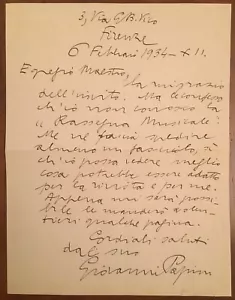 3, Via G. B. Vico
Firenze
6 Febbraio 1934 - XII.
Egregio Maestro,
la ringrazio
dell'invito. Ma le confesso
ch'io non conosco la
"Rassegna Musicale".
Me ne faccia spedire
almeno un fascicolo, sì
ch'io possa vedere meglio
cosa potrebbe essere adatto
per la rivista e per me.
Appena mi sarà possi-
bile le manderò volen-
tieri qualche pagina.
Cordiali saluti
dal suo
Giovanni Papini